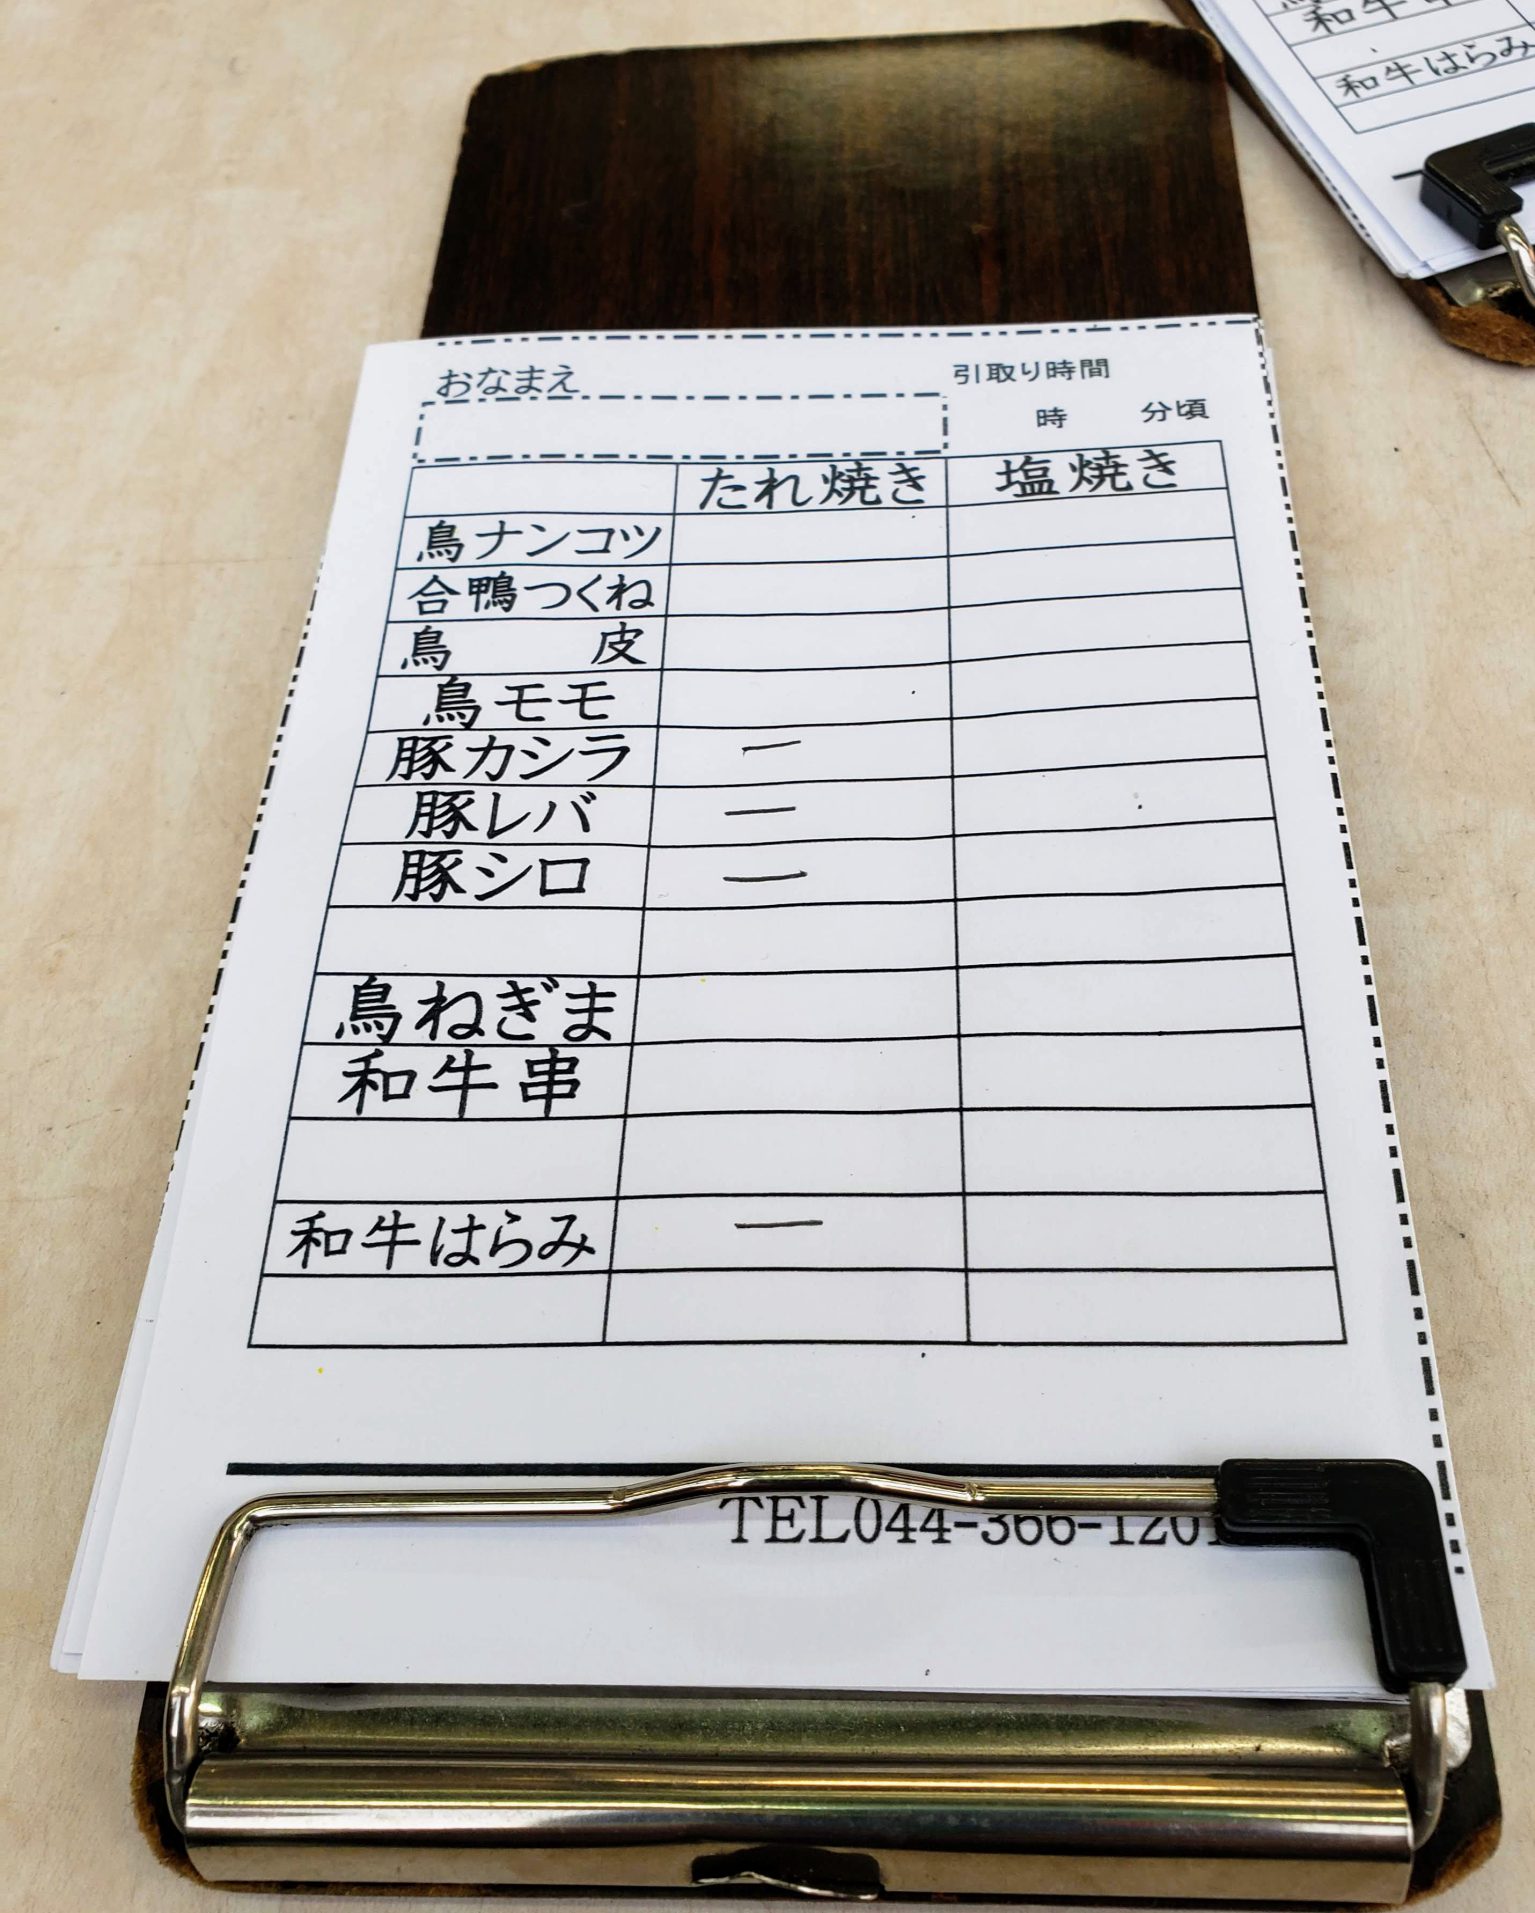 和牛串
和牛はらみ
おなまえ
引取り時間
時 分頃
たれ焼き 塩焼き
鳥ナンコツ
合鴨つくね
鳥 皮
鳥モモ
豚カシラ 一
豚レバ 一
豚シロ 一
鳥ねぎま
和牛串
和牛はらみ 一
TEL044-366-1201